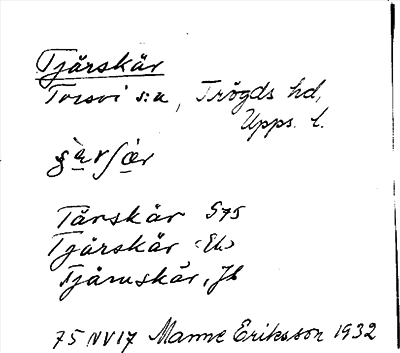 Tjärskär
Torsvi s:n, Trögds hd,
Upps. l.
Tärskär S75
Tjärskär (Ek)
Tjäruskär, Jb
75 NV17 Manne Eriksson 1932